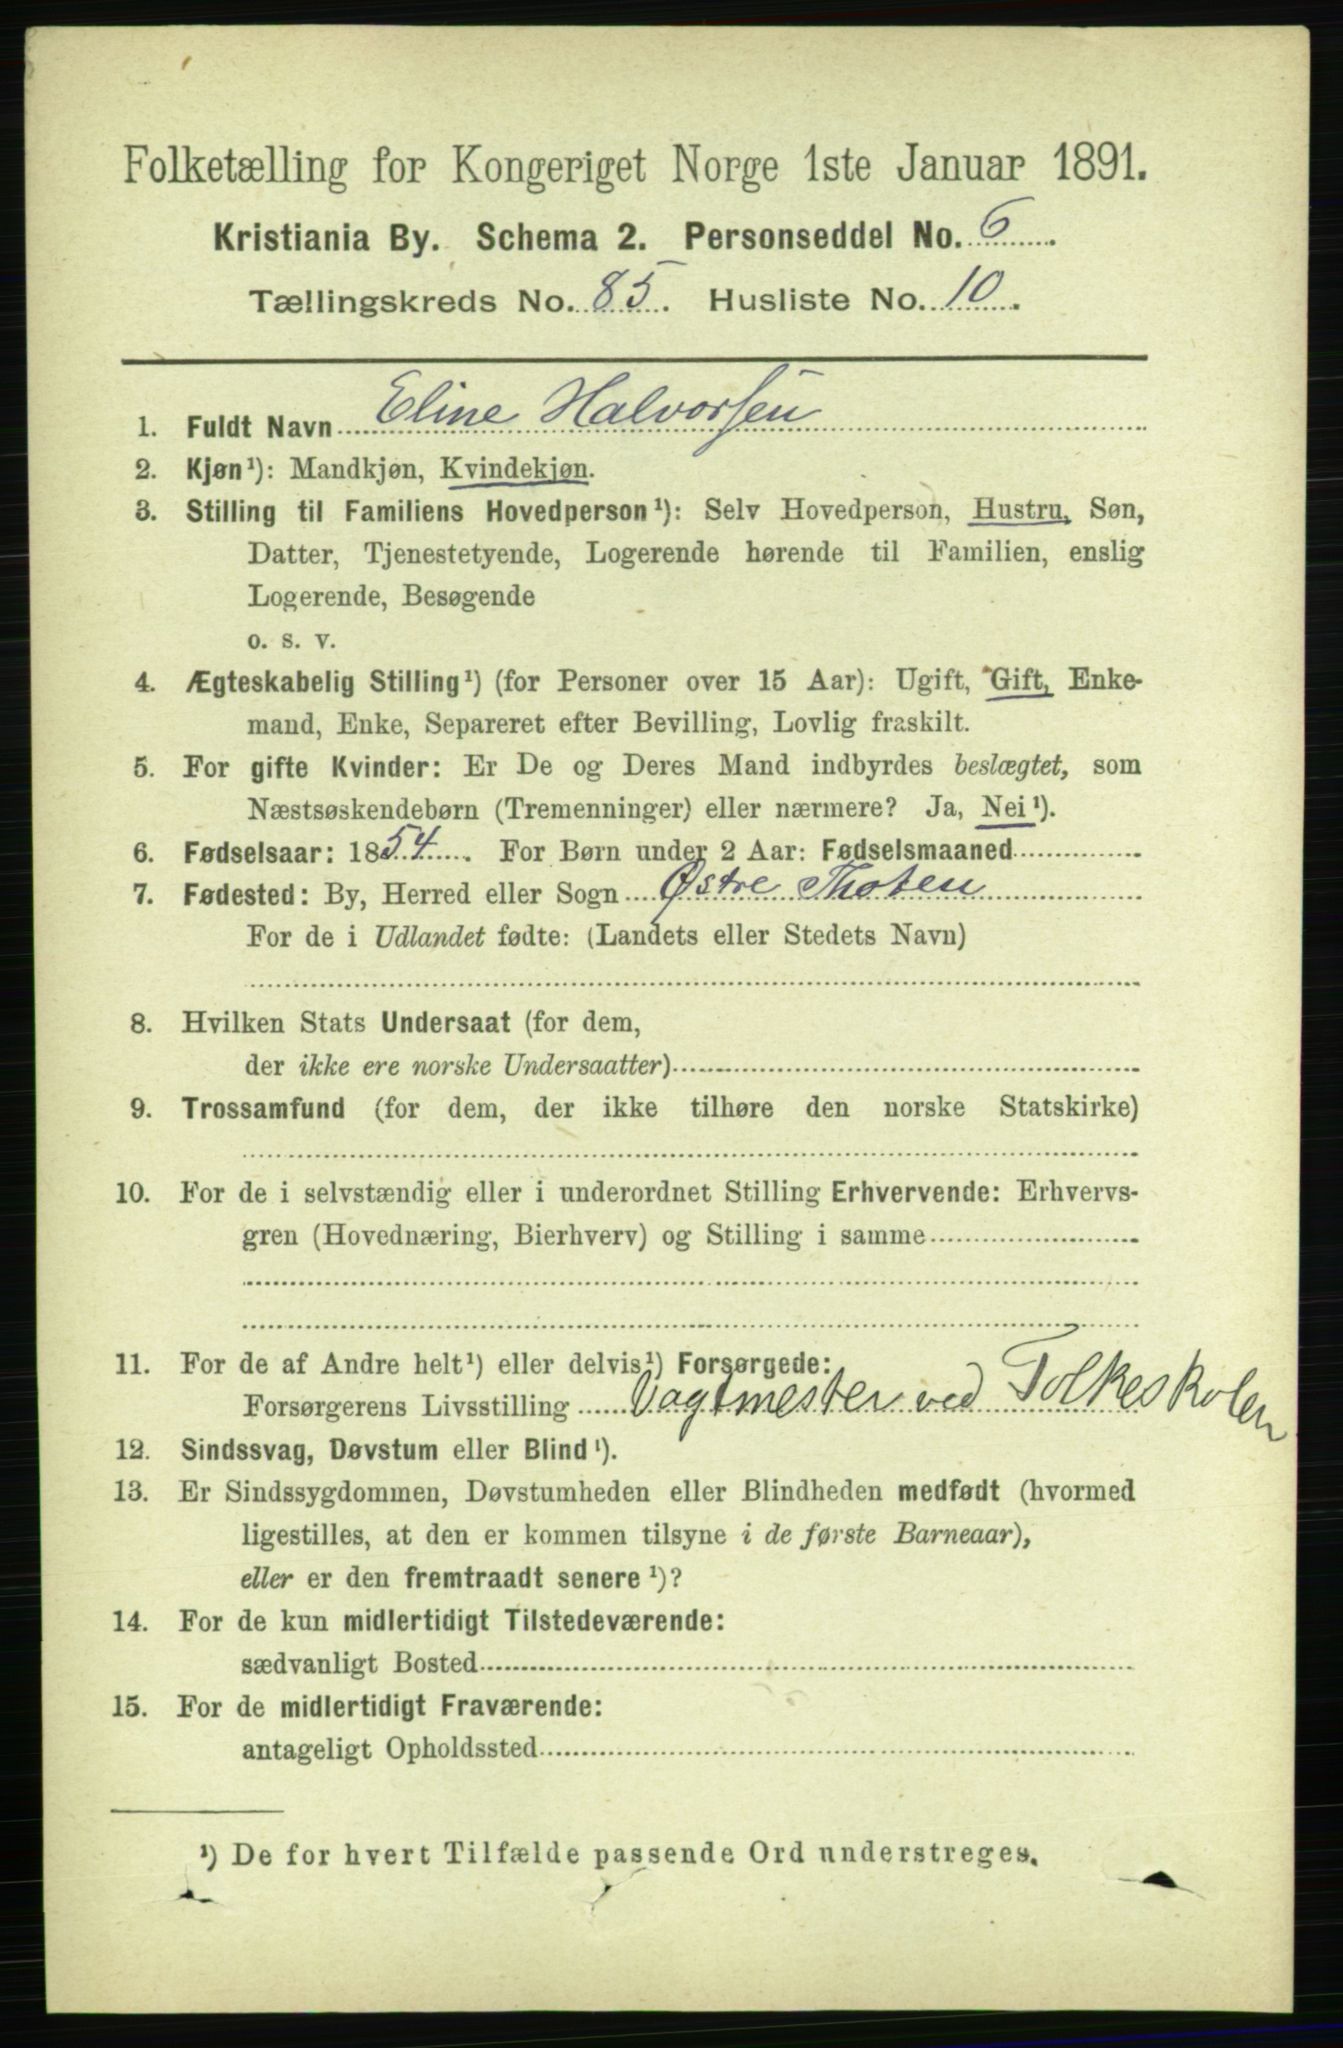 Folketælling for Kongeriget Norge 1ste Januar 1891.
Kristiania By. Schema 2. Personseddel No. 6.
Tællingskreds No. 85. Husliste No. 10.
1. Fuldt Navn Eline Halvorsen
2. Kjøn¹): Mandkjøn, Kvindekjøn.
3. Stilling til Familiens Hovedperson¹): Selv Hovedperson, Hustru, Søn,
Datter, Tjenestetyende, Logerende hørende til Familien, enslig
Logerende, Besøgende
o. s. v.
4. Ægteskabelig Stilling¹) (for Personer over 15 Aar): Ugift, Gift, Enke-
mand, Enke, Separeret efter Bevilling, Lovlig fraskilt.
5. For gifte Kvinder: Er De og Deres Mand indbyrdes beslægtet, som
Næstsøskendebørn (Tremenninger) eller nærmere? Ja, Nei¹).
6. Fødselsaar: 1854. For Børn under 2 Aar: Fødselsmaaned
7. Fødested: By, Herred eller Sogn Østre Thoten
For de i Udlandet fødte: (Landets eller Stedets Navn)
8. Hvilken Stats Undersaat (for dem,
der ikke ere norske Undersaatter)
9. Trossamfund (for dem, der ikke tilhøre den norske Statskirke)
10. For de i selvstændig eller i underordnet Stilling Erhvervende: Erhvervs-
gren (Hovednæring, Bierhverv) og Stilling i samme
11. For de af Andre helt¹) eller delvis¹) Forsørgede:
Forsørgerens Livsstilling Vagtmester ved Folkeskolen
12. Sindssvag, Døvstum eller Blind¹).
13. Er Sindssygdommen, Døvstumheden eller Blindheden medfødt (hvormed
ligestilles, at den er kommen tilsyne i de første Barneaar),
eller er den fremtraadt senere¹)?
14. For de kun midlertidigt Tilstedeværende:
sædvanligt Bosted
15. For de midlertidigt Fraværende:
antageligt Opholdssted
¹) De for hvert Tilfælde passende Ord understreges.